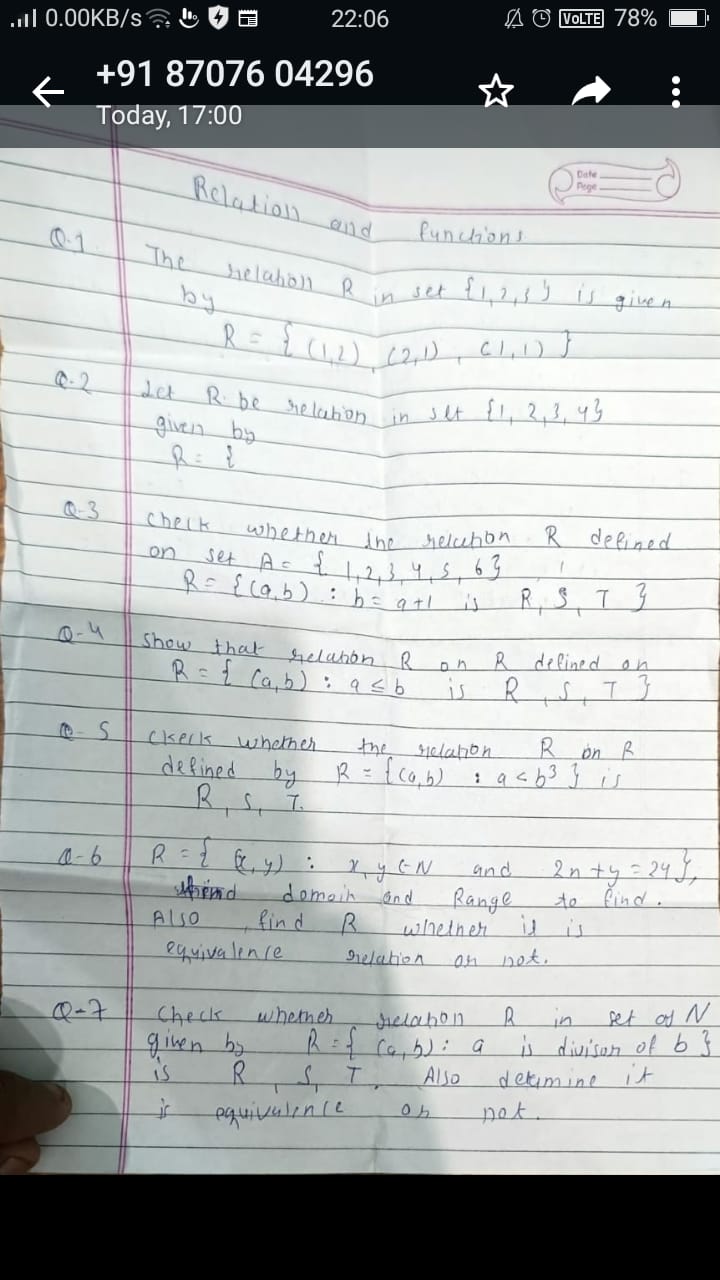 0.00KB/s 22:06 VoLTE 78%
+91 87076 04296
Today, 17:00
Date
Page
Relation and functions
Q.1 The relation R in set {1,2,3} is given
by
R = { (1,2), (2,1), (1,1) }
Q.2 Let R be relation in set {1, 2, 3, 4}
given by
R = {
Q-3 check whether the relation R defined
on set A = { 1,2,3,4,5,6}
R = {(a,b) : b = a+1 is R, S, T }
Q-4 show that relation R on R defined on
R = { (a,b) : a ≤ b is R, S, T }
Q-5 Ckeck whether the relation R on R
defined by R = {(a,b) : a < b³ } is
R, S, T.
Q-6 R = { (x, y) : x, y ∈ N and 2n + y = 24 },
domain and Range to find.
Also, find R whether it is
equivalence relation or not.
Q-7 Check whether relation R in set of N
given by R = { (a,b) : a is divison of b }
is R, S, T. Also detemine it
is equivalence or not.